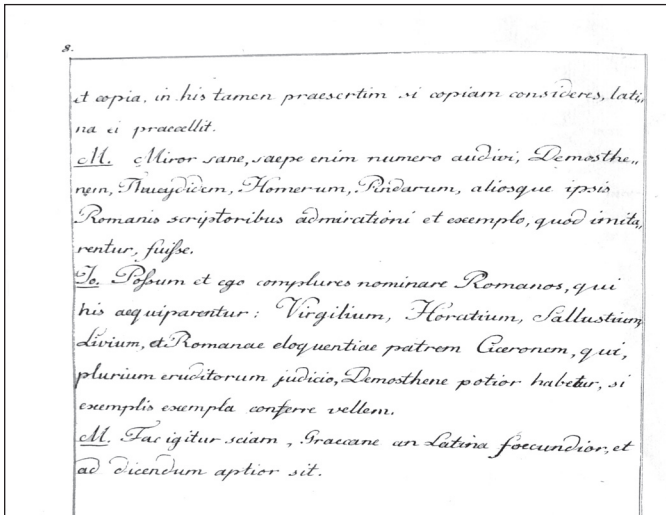 8.
et copia, in his tamen praesertim si copiam consideres, lati„
na ei praecellit.
M. Miror sane, saepe enim numero audivi, Demosthe„
nem, Thucydidem, Homerum, Pindarum, aliosque ipsis
Romanis scriptoribus admirationi et exemplo, quod imita„
rentur, fuiſse.
Jo. Poſsum et ego complures nominare Romanos, qui
his aequiparentur: Virgilium, Horatium, Sallustium,
Livium, et Romanae eloquentiae patrem Ciceronem, qui,
plurium eruditorum judicio, Demosthene potior habetur, si
exemplis exempla conferre vellem.
M. Fac igitur sciam, Graecane an Latina foecundior, et
ad dicendum aptior sit.